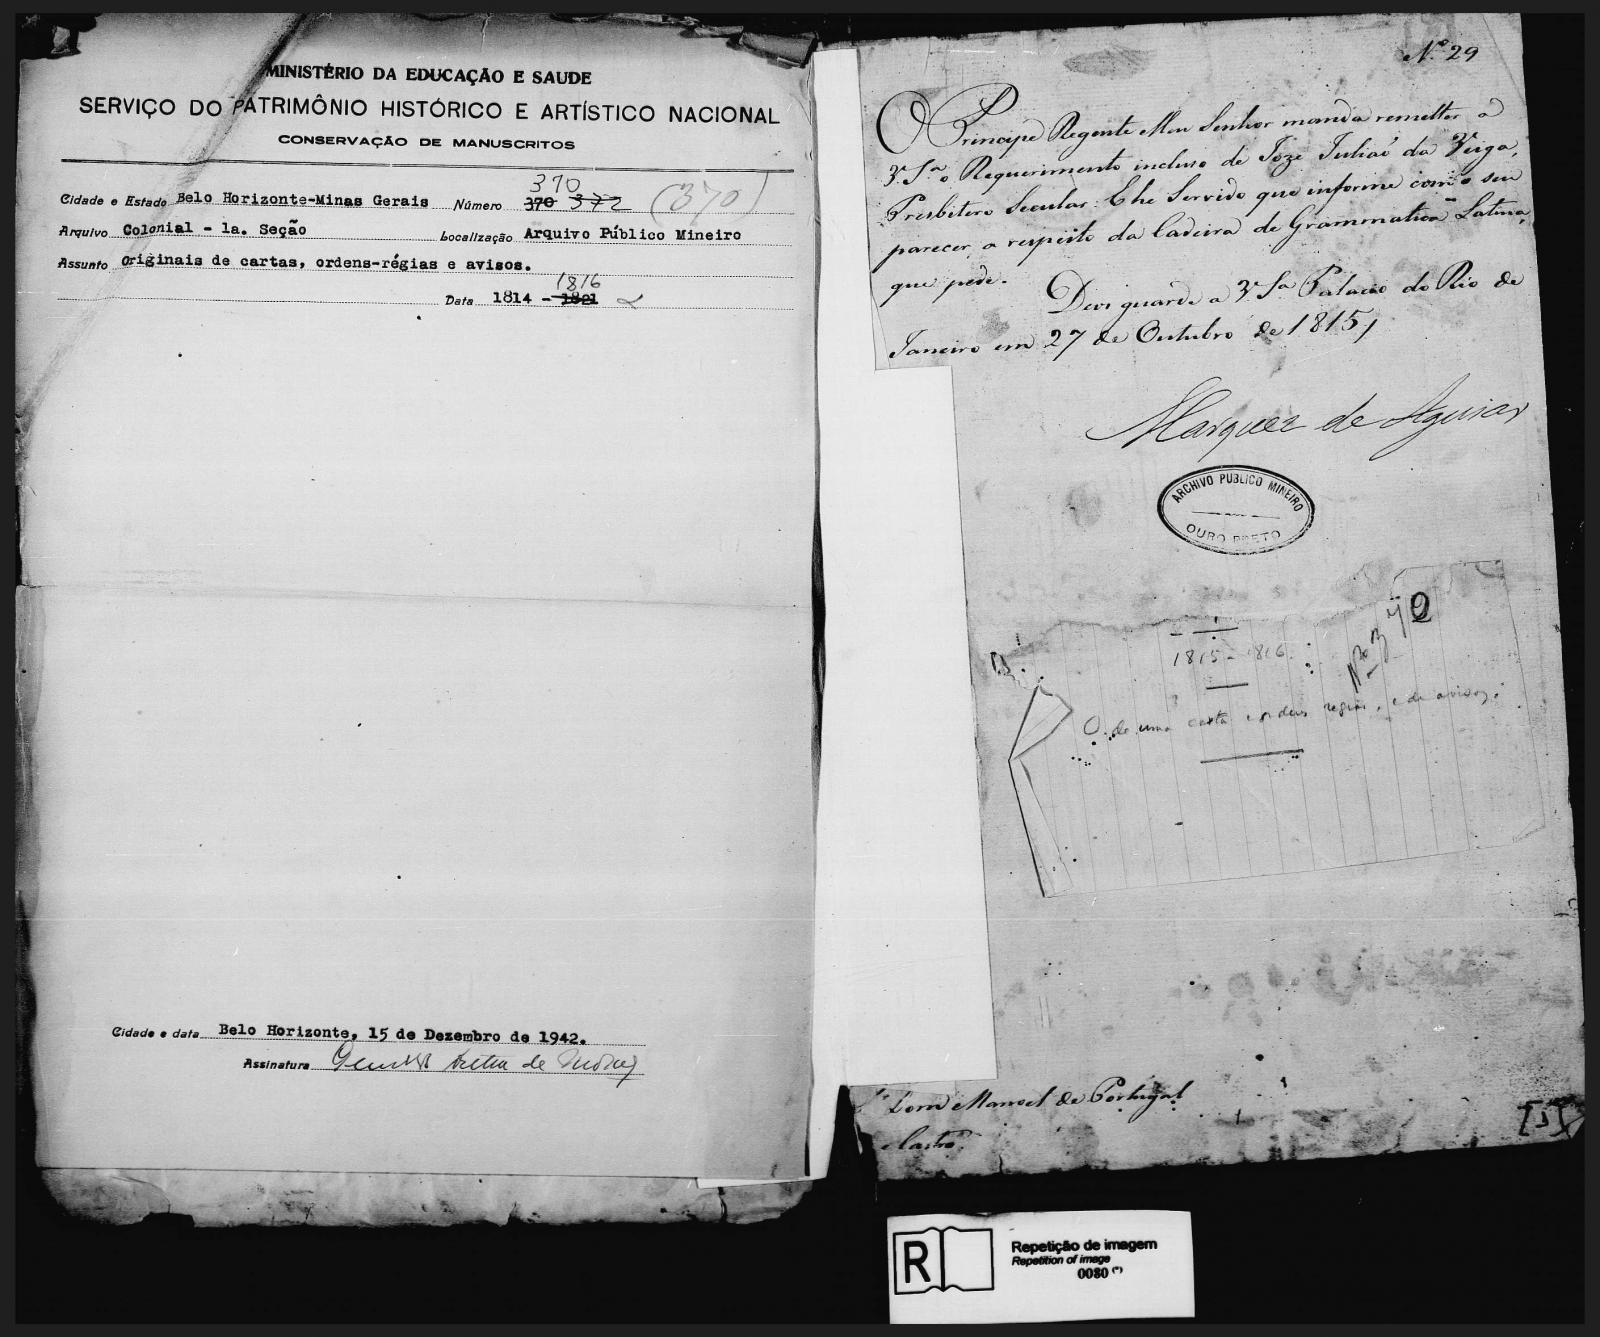 MINISTÉRIO DA EDUCAÇÃO E SAUDE
SERVIÇO DO PATRIMÔNIO HISTÓRICO E ARTÍSTICO NACIONAL
CONSERVAÇÃO DE MANUSCRITOS
370
Cidade e Estado Belo Horizonte-Minas Gerais Número 370 372 (370)
Arquivo Colonial - 1a. Seção Localização Arquivo Público Mineiro
Assunto Originais de cartas, ordens-régias e avisos.
1816
Data 1814 - 1821
Cidade e data Belo Horizonte, 15 de Dezembro de 1942.
Assinatura
Nº 29
O Principe Regente Meu Senhor manda remetter a
V. Sª o Requerimento incluso de Joze Juliaõ da Veiga,
Presbitero Secular: E he Servido que informe com o seu
parecer a respeito da Cadeira de Grammatica Latina,
que pede.
Deos guarde a V Sª Palacio do Rio de
Janeiro em 27 de Outubro de 1815
Marquez de Aguiar
ARCHIVO PUBLICO MINEIRO
OURO PRETO
1815 - 1816
Nº 370
O. de uma carta e ordens regias, e de avisos
Dom Manoel de Portugal
Castro
[1]
R
Repetição de imagem
Repetition of image
0080 (*)